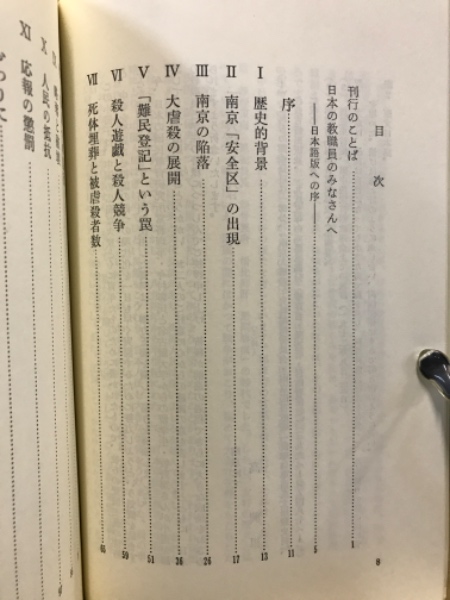 目次
刊行のことば 1
日本の教職員のみなさんへ
——日本語版への序—— 5
序 11
Ⅰ 歴史的背景 13
Ⅱ 南京「安全区」の出現 17
Ⅲ 南京の陥落 26
Ⅳ 大虐殺の展開 36
Ⅴ 「難民登記」という罠 51
Ⅵ 殺人遊戯と殺人競争 59
Ⅶ 死体埋葬と被虐殺者数 65
8
Ⅹ 人民の抵抗
Ⅺ 応報の懲罰